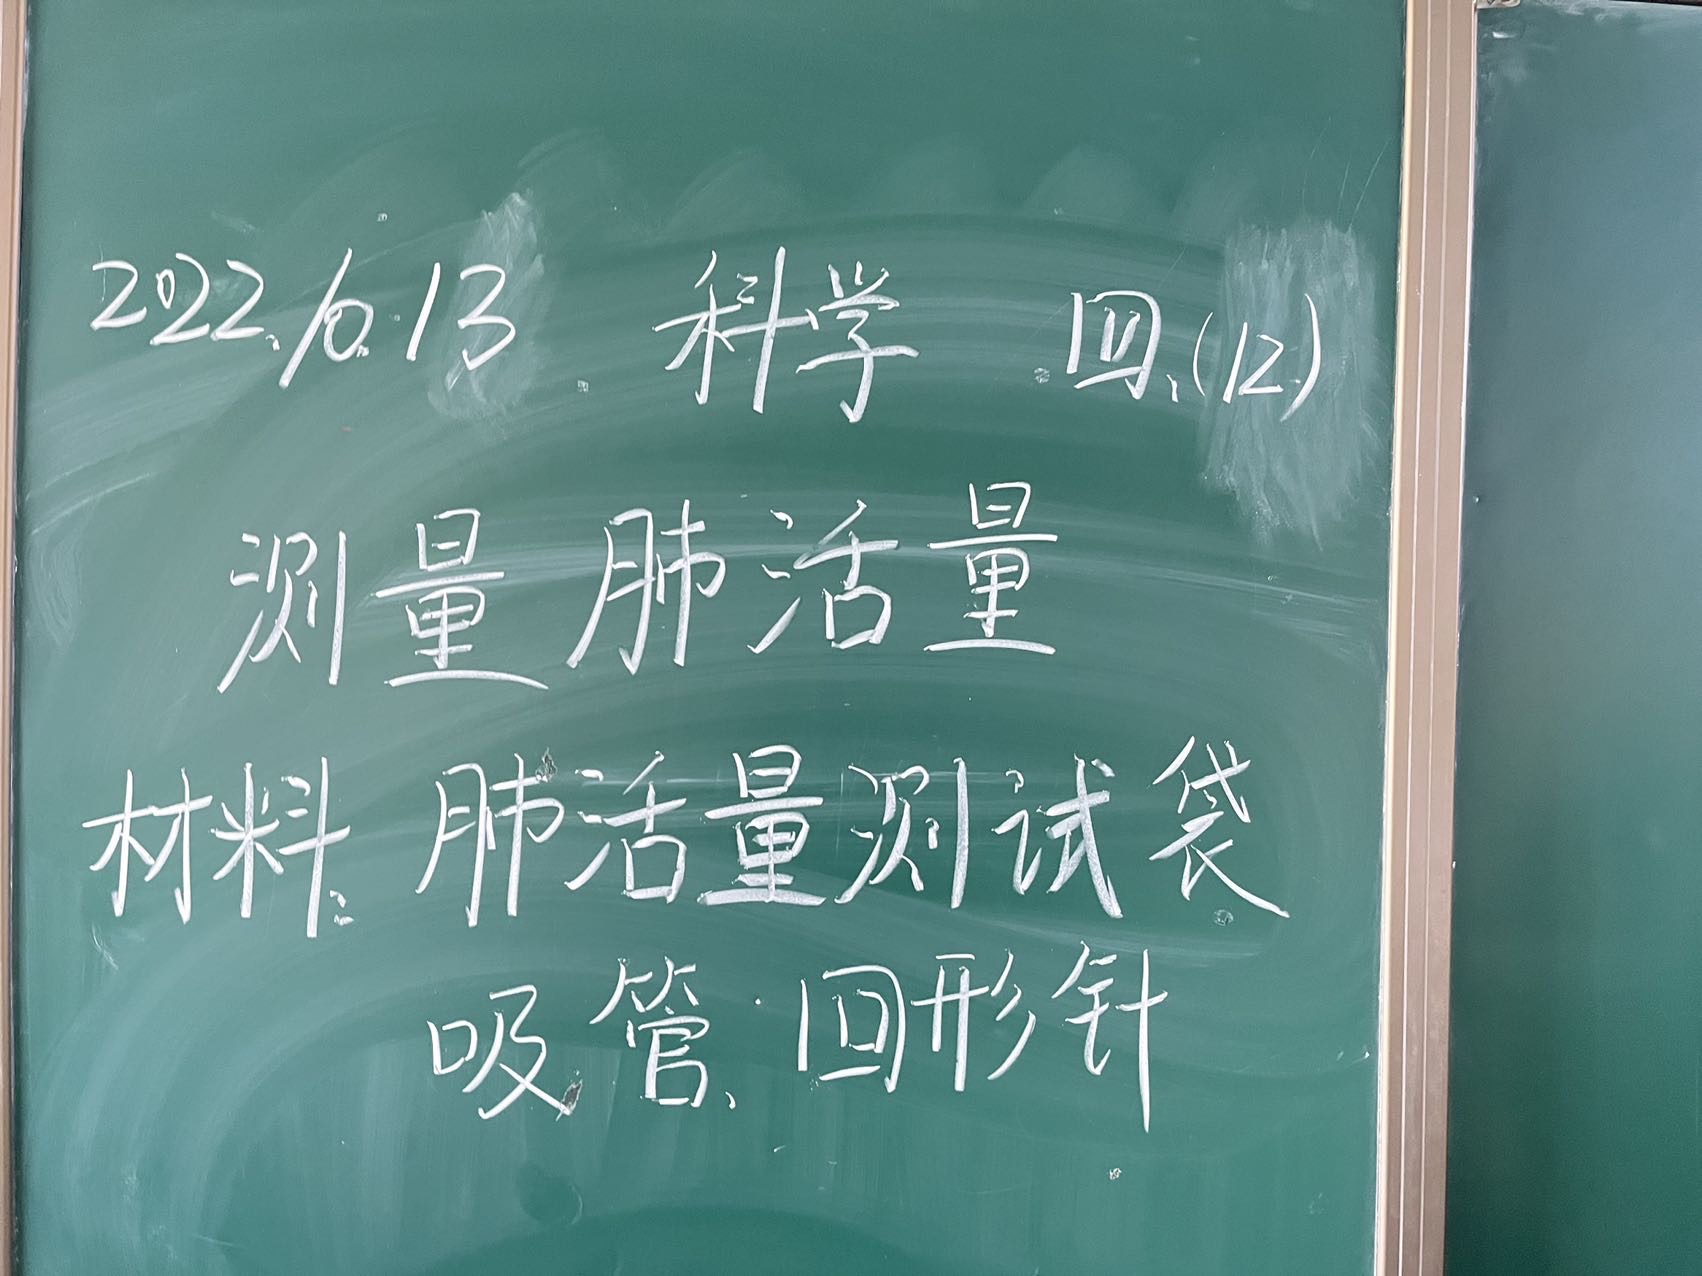 2022.10.13 科学 四、(12)
测量肺活量
材料:肺活量测试袋
吸管、回形针